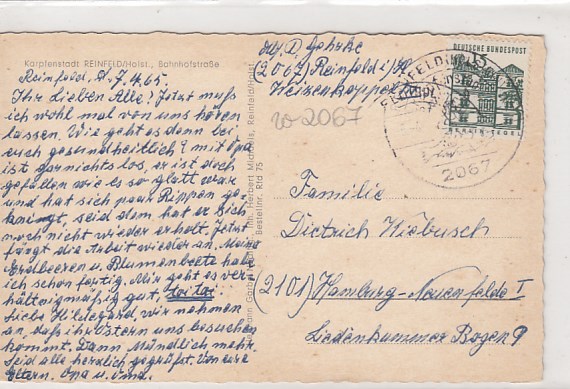 Karpfenstadt REINFELD/Holst., Bahnhofstraße
Reinfeld, d. 7.4.65.
Ihr Lieben Alle! Jetzt muß
ich wohl mal von uns hören
lassen. Wie geht es denn bei
euch gesundheitlich? mit Opa
ist garnichts los, er ist doch
gefallen wie es so glatt war
und hat sich paar Rippen ge-
kningt, seid dem hat er sich
noch nicht wieder erholt. Jetzt
fängt die Arbeit wieder an. Meine
Erdbeeren u. Blumenbeete habe
ich schon fertig. Mir geht es ver-
hältnigmäßig gut, toi toi
Liebe Hildegard, wir nehmen
an, daß ihr Ostern uns besuchen
kommt. Dann Mündlich mehr.
Seid alle herzlich gegrüßt. Von eure
Eltern. Opa u. Oma.
Inh. Herbert
Reinfeld/Holst.
Bestellnr. Rfd 75
Abs. D. Gehrke
(2067) Reinfeld i/H
Weizenkoppel
2067
DEUTSCHE BUNDESPOST
2067
Familie
Dietrich Wiebusch
(2101) Hamburg-Neuenfelde I
Liedenkummer Bogen 9